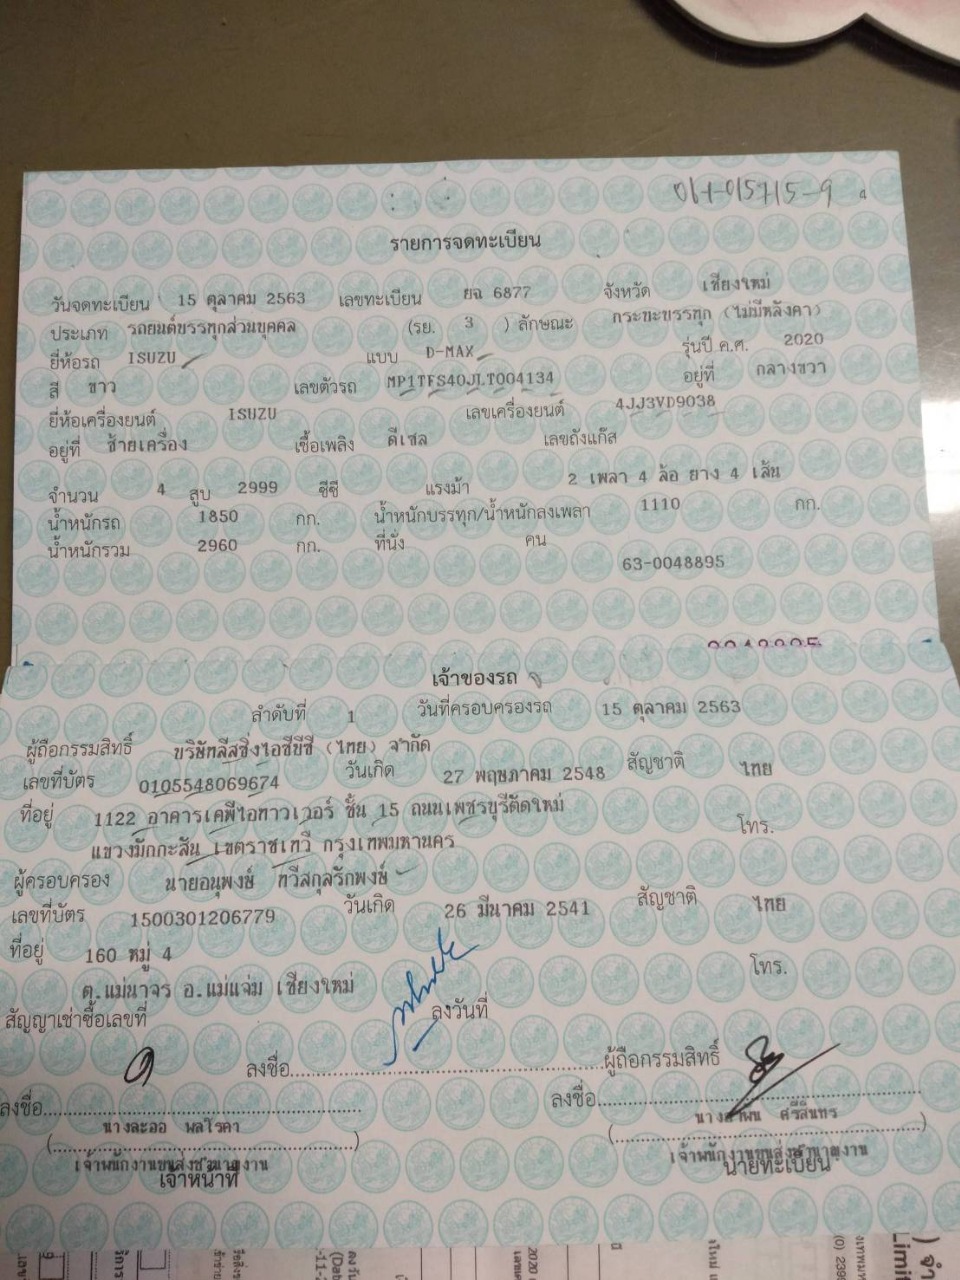 061-015715-9
รายการจดทะเบียน
วันจดทะเบียน 15 ตุลาคม 2563 เลขทะเบียน ยฉ 6877 จังหวัด เชียงใหม่
ประเภท รถยนต์บรรทุกส่วนบุคคล (รย. 3 ) ลักษณะ กระบะบรรทุก (ไม่มีหลังคา)
ยี่ห้อรถ ISUZU แบบ D-MAX รุ่นปี ค.ศ. 2020
สี ขาว เลขตัวรถ MP1TFS40JLT004134 อยู่ที่ กลางขวา
ยี่ห้อเครื่องยนต์ ISUZU เลขเครื่องยนต์ 4JJ3VD9038
อยู่ที่ ซ้ายเครื่อง เชื้อเพลิง ดีเซล เลขถังแก๊ส
จำนวน 4 สูบ 2999 ซีซี แรงม้า 2 เพลา 4 ล้อ ยาง 4 เส้น
น้ำหนักรถ 1850 กก. น้ำหนักบรรทุก/น้ำหนักลงเพลา 1110 กก.
น้ำหนักรวม 2960 กก. ที่นั่ง คน
63-0048895
เจ้าของรถ
ลำดับที่ 1 วันที่ครอบครองรถ 15 ตุลาคม 2563
ผู้ถือกรรมสิทธิ์ บริษัทลีสซิ่งไอซีบีซี (ไทย) จำกัด
เลขที่บัตร 0105548069674 วันเกิด 27 พฤษภาคม 2548 สัญชาติ ไทย
ที่อยู่ 1122 อาคารเคพีไอทาวเวอร์ ชั้น 15 ถนนเพชรบุรีตัดใหม่ โทร.
แขวงมักกะสัน เขตราชเทวี กรุงเทพมหานคร
ผู้ครอบครอง นายอนุพงษ์ ทวีสกุลรักพงษ์
เลขที่บัตร 1500301206779 วันเกิด 26 มีนาคม 2541 สัญชาติ ไทย
ที่อยู่ 160 หมู่ 4 โทร.
ต.แม่นาจร อ.แม่แจ่ม เชียงใหม่
สัญญาเช่าซื้อเลขที่ ลงวันที่
ลงชื่อ ผู้ถือกรรมสิทธิ์
ลงชื่อ ลงชื่อ
นางละออ พลโรคา ศรีสินทร
เจ้าพนักงานขนส่งชำนาญงาน เจ้าพนักงานขนส่งชำนาญงาน
เจ้าหน้าที่ นายทะเบียน